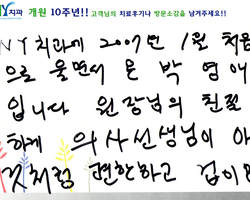 NY치과 개원 10주년!! 고객님의 치료후기나 방문소감을 남겨주세요!!
NY 치과에 2007년 1월 처음
으로 울면서 온 박영애
입니다 원장님의 친절
하게 의사선생님이 아
처럼 편한하고 겁이